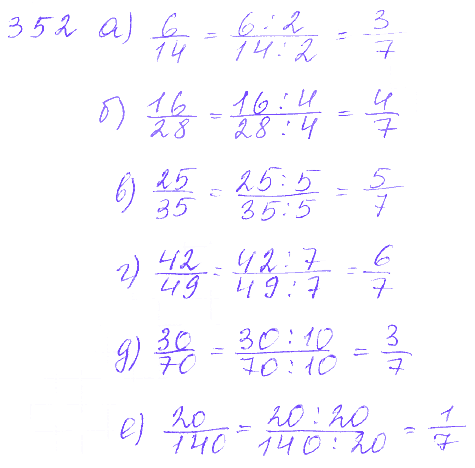 352 а) 6/14 = 6:2/14:2 = 3/7
б) 16/28 = 16:4/28:4 = 4/7
в) 25/35 = 25:5/35:5 = 5/7
г) 42/49 = 42:7/49:7 = 6/7
д) 30/70 = 30:10/70:10 = 3/7
е) 20/140 = 20:20/140:20 = 1/7